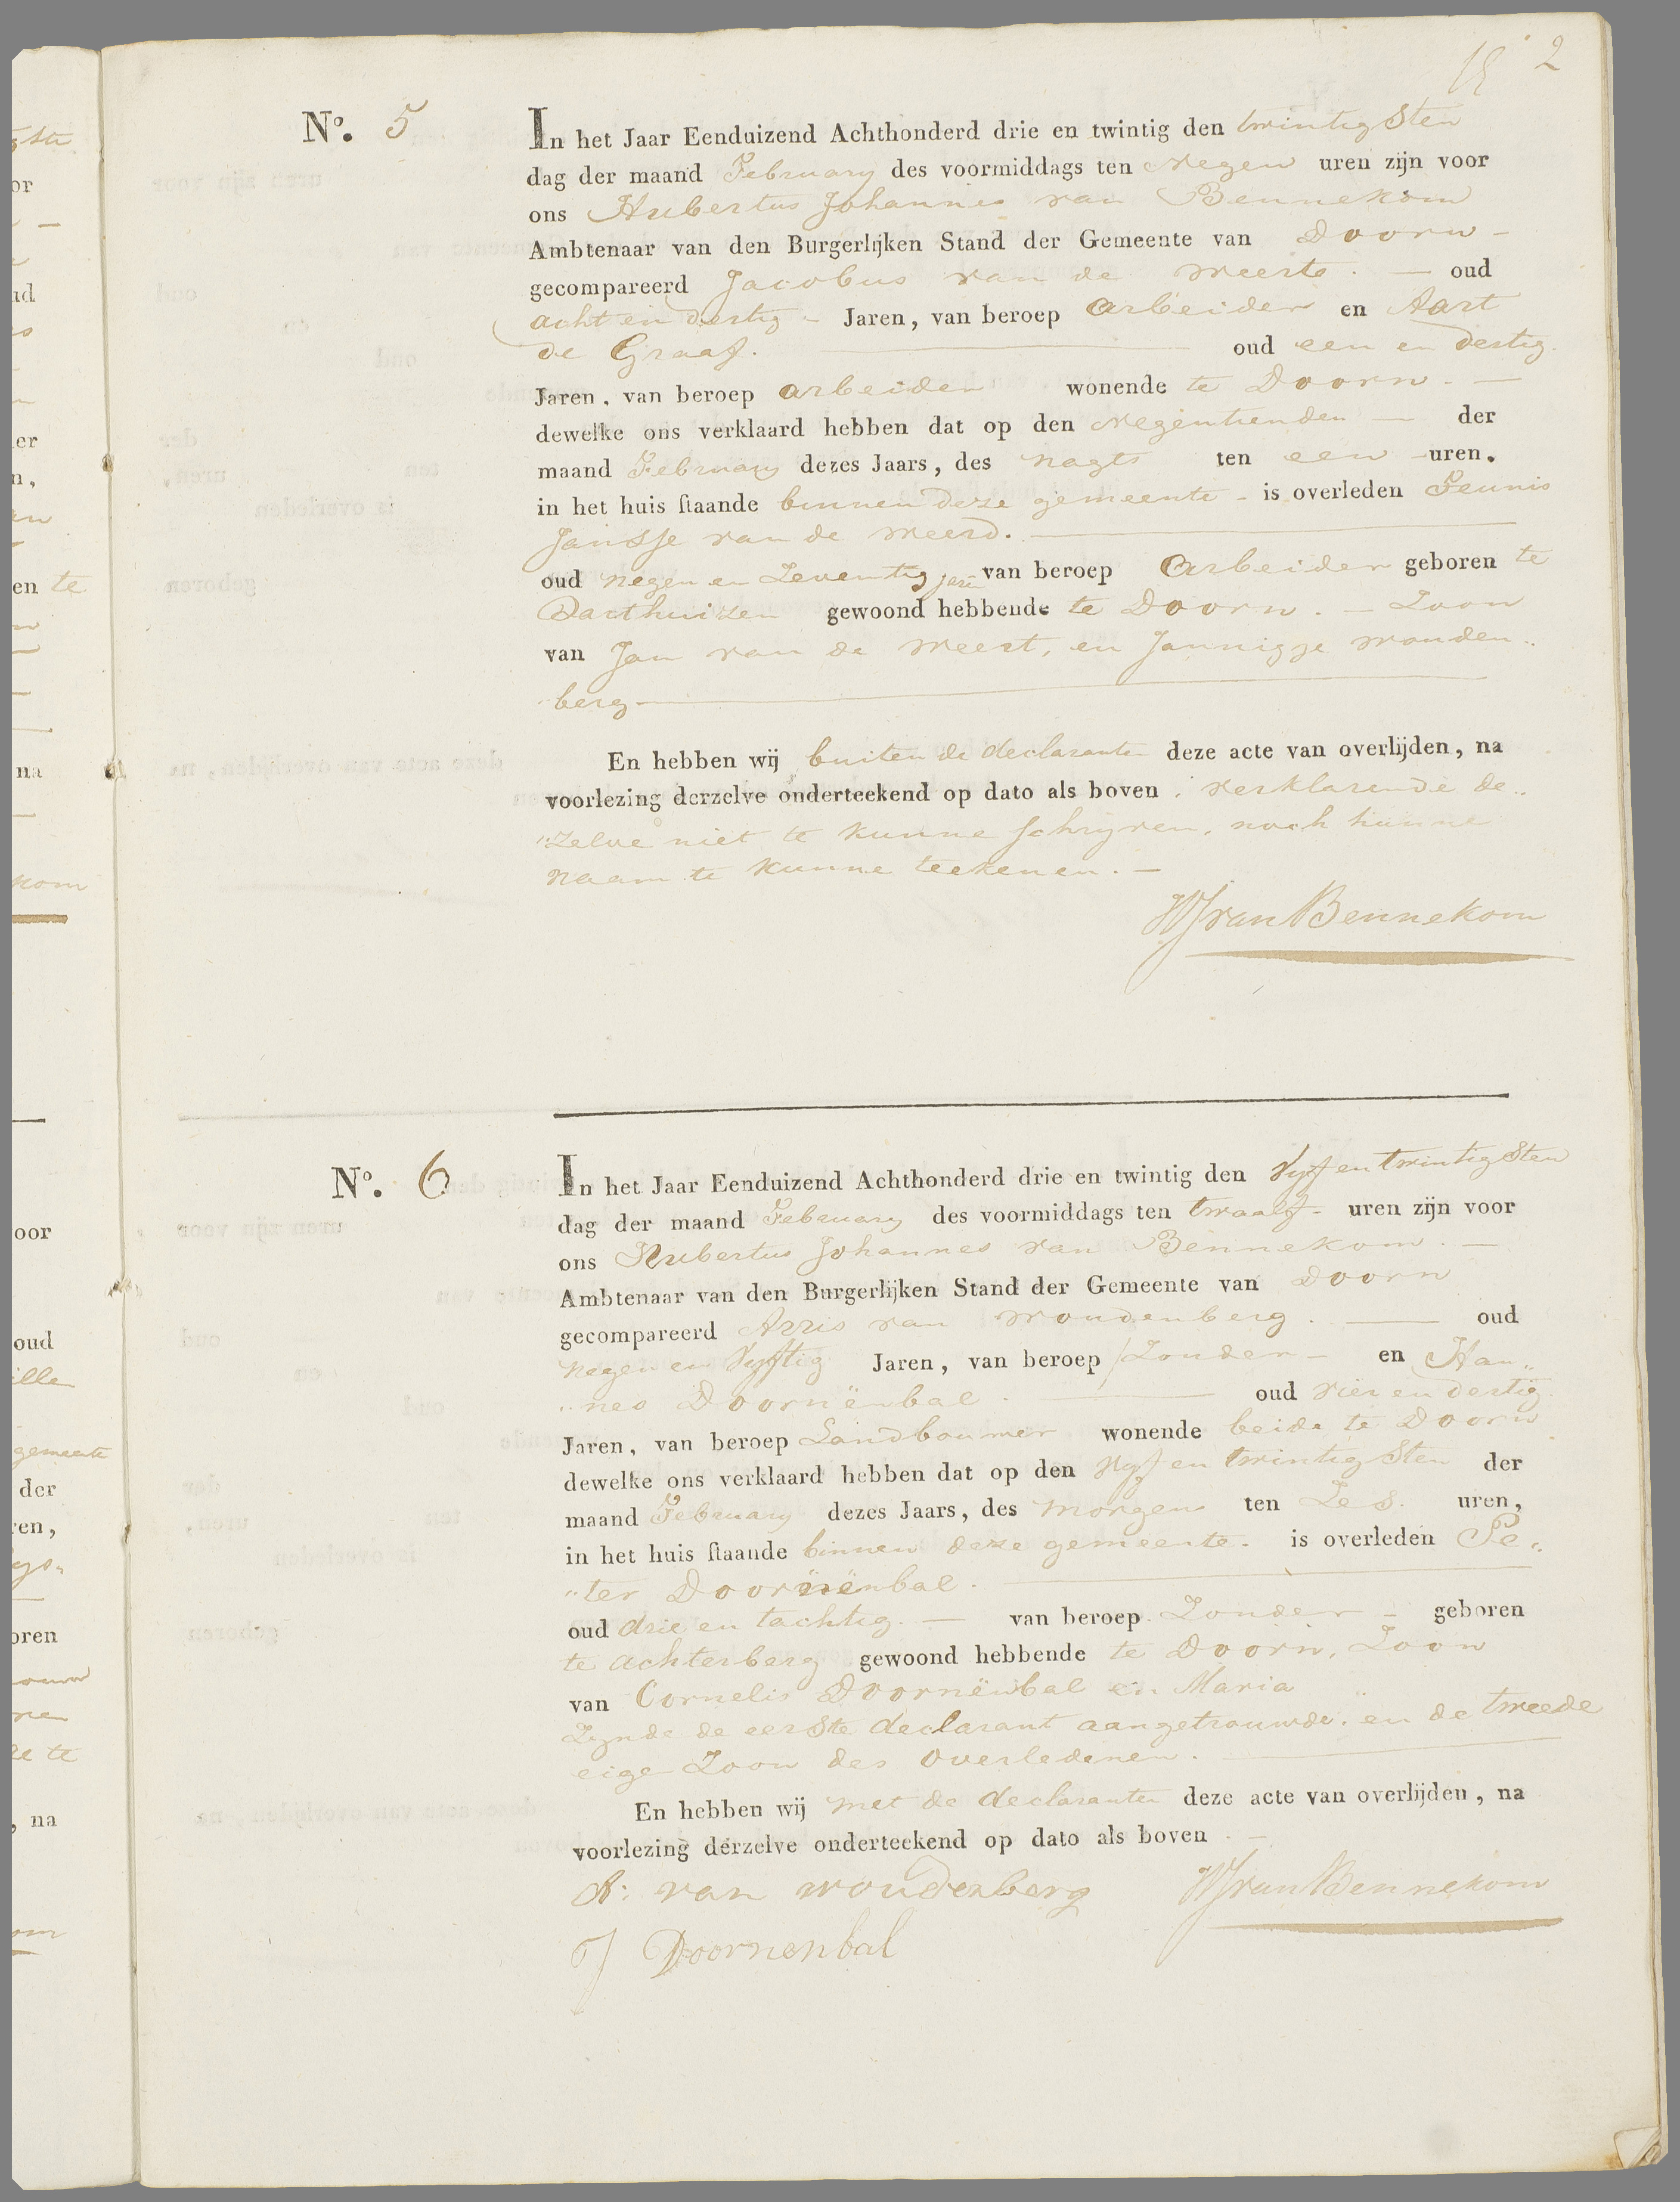 2
No. 5
In het Jaar Eenduizend Achthonderd drie en twintig den twintigsten
dag der maand February des voormiddags ten negen uren zijn voor
ons Hubertus Johannes van Bennekom
Ambtenaar van den Burgerlijken Stand der Gemeente van Doorn -
gecompareerd Jacobus van de Weerts. — oud
acht en dertig - Jaren, van beroep arbeider en Aart
de Graaf. — oud een en dertig.
Jaren, van beroep arbeider wonende te Doorn. —
dewelke ons verklaard hebben dat op den negentienden — der
maand February dezes Jaars, des nagts ten een uren.
in het huis staande binnen deze gemeente - is overleden Teunis
Jansse van de Weerd. —
oud negen en Zeventig jare van beroep Arbeider geboren te
Darthuizen gewoond hebbende te Doorn. - Zoon
van Jan van de Weert, en Jannigje Wouden„
berg —
En hebben wij buiten de declarante deze acte van overlijden, na
voorlezing derzelve onderteekend op dato als boven, verklarende de„
„zelve niet te kunne schryven, noch hunne
naam te kunne teekenen. —
HJvanBennekom
No. 6
In het Jaar Eenduizend Achthonderd drie en twintig den Vyf en twintigsten
dag der maand February des voormiddags ten twaalf - uren zijn voor
ons Hubertus Johannes van Bennekom. —
Ambtenaar van den Burgerlijken Stand der Gemeente van Doorn
gecompareerd Arris van Woudenberg. — oud
negen en Vyftig Jaren, van beroep Zonder - en Han„
„nes Doornënbal. — oud vier en dertig.
Jaren, van beroep Landbouwer wonende beide te Doorn
dewelke ons verklaard hebben dat op den Vyf en twintigsten der
maand February dezes Jaars, des morgens ten Zes. uren,
in het huis staande binnen deze gemeente. is overleden Pe„
„ter Doornënbal. —
oud drie en tachtig. — van beroep Zonder - geboren
te achterberg gewoond hebbende te Doorn, Zoon
van Cornelis Doornënbal en Maria
Zynde de eerste declarant aangetrouwde, en de tweede
eige Zoon des Overledenen. —
En hebben wij met de declarante deze acte van overlijden, na
voorlezing derzelve onderteekend op dato als boven . —
A: van Woudenberg HJvanBennekom
J Doornenbal